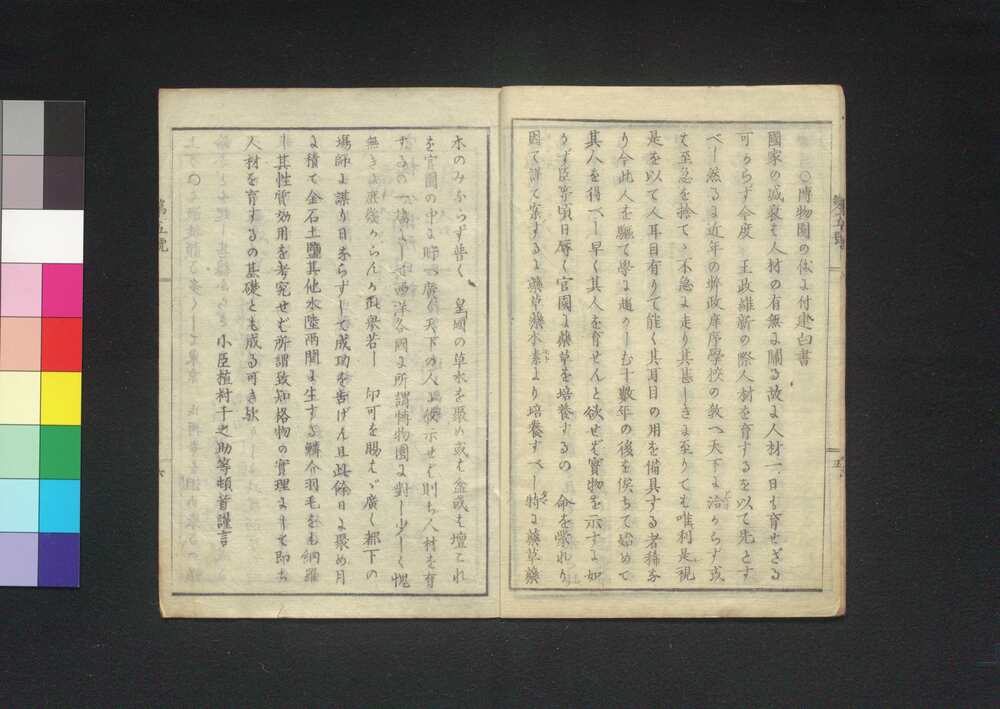 ○博物園の儀に付建白書
國家の盛衰は人材の有無に關る故に人材一日も育せざる
可からず今度 王政維新の際人材を育するを以て先とす
べし然るに近年の弊政庠序學校の教へ天下に洽からず或
て至急を捨て不急に走り其甚しきに至りても唯利是視
是を以て人耳目有りて能く其耳目の用を備具する者稀な
り今此人を驅て學に趣かしむ十數年の後を俟ちて始めて
其人を得べし早く其人を育せんと欲せば實物を示すに如
かず臣等頃日辱く官園に藥草を培養するの 命を蒙れり
因て謹て案ずるに藥草藥木素より培養すべし特に藥草藥
木のみならず普く 皇國の草木を聚め或は盆或は壇これ
を官園の中に 廣く天下の人に使示せば則ち人材を育
するの一 にして西洋各國に所謂博物園に對し少しく愧
無きに庶幾からんか臣衆若し 印可を賜はゞ廣く都下の
場師に謀り日ならずして成功を告げん且此餘日に聚め月
に積て金石土鹽其他水陸兩間に生ずる鱗介羽毛をも網羅
し其性質効用を考究せば所謂致知格物の實理にして即ち
人材を育するの基礎とも成る可き歟
小臣植村千之助等頓首謹言
第五號
五
六